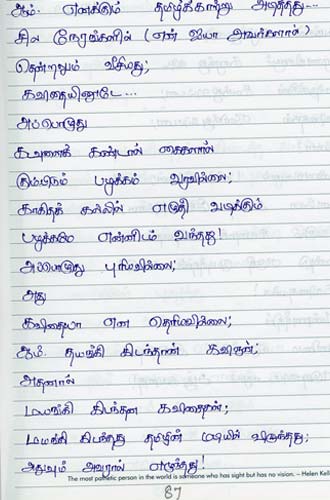 ஆம். எனக்கும் தமிழ்க்காற்று அடித்தது...
சில நேரங்களில் (என் ஐயா அவர்களால்)
தென்றலும் வீசியது;
கவிதையினூடே...
அப்பொழுது
கடவுளைக் கண்டால் கைகளால்
கும்பிடும் பழக்கம் வரவில்லை;
காகிதக் கல்லில் எழுதி வடிக்கும்
பழக்கமே என்னிடம் வந்தது!
அப்பொழுது புரியவில்லை;
அது
கவிதையா என தெரியவில்லை;
ஆம். தயங்கி கிடந்தான் கவிஞன்;
அதனால்
மயங்கி கிடந்தன கவிதைகள்;
மயங்கி கிடந்தது தமிழின் மடியில் விழுந்தது;
அதுவும் அவரால் எழுந்தது!
The most pathetic person in the world is someone who has sight but has no vision. – Helen Kell
87